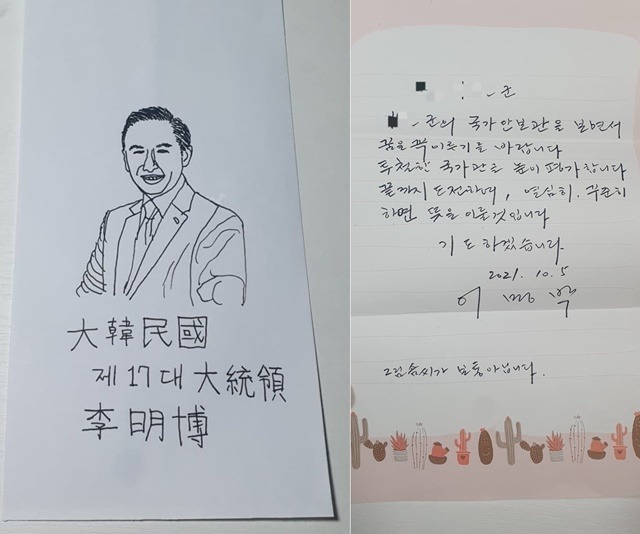 大韓民國
제 17 대 大統領
李明博
군
군의 국가안보관을 보면서
꿈을 꼭 이루기를 바랍니다
투철한 국가관을 높이 평가합니다
끝까지 도전하며, 열심히. 꾸준히
하면 뜻을 이룰것입니다
기도하겠습니다.
2021. 10. 5
이 명 박
그림 솜씨가 보통아닙니다.